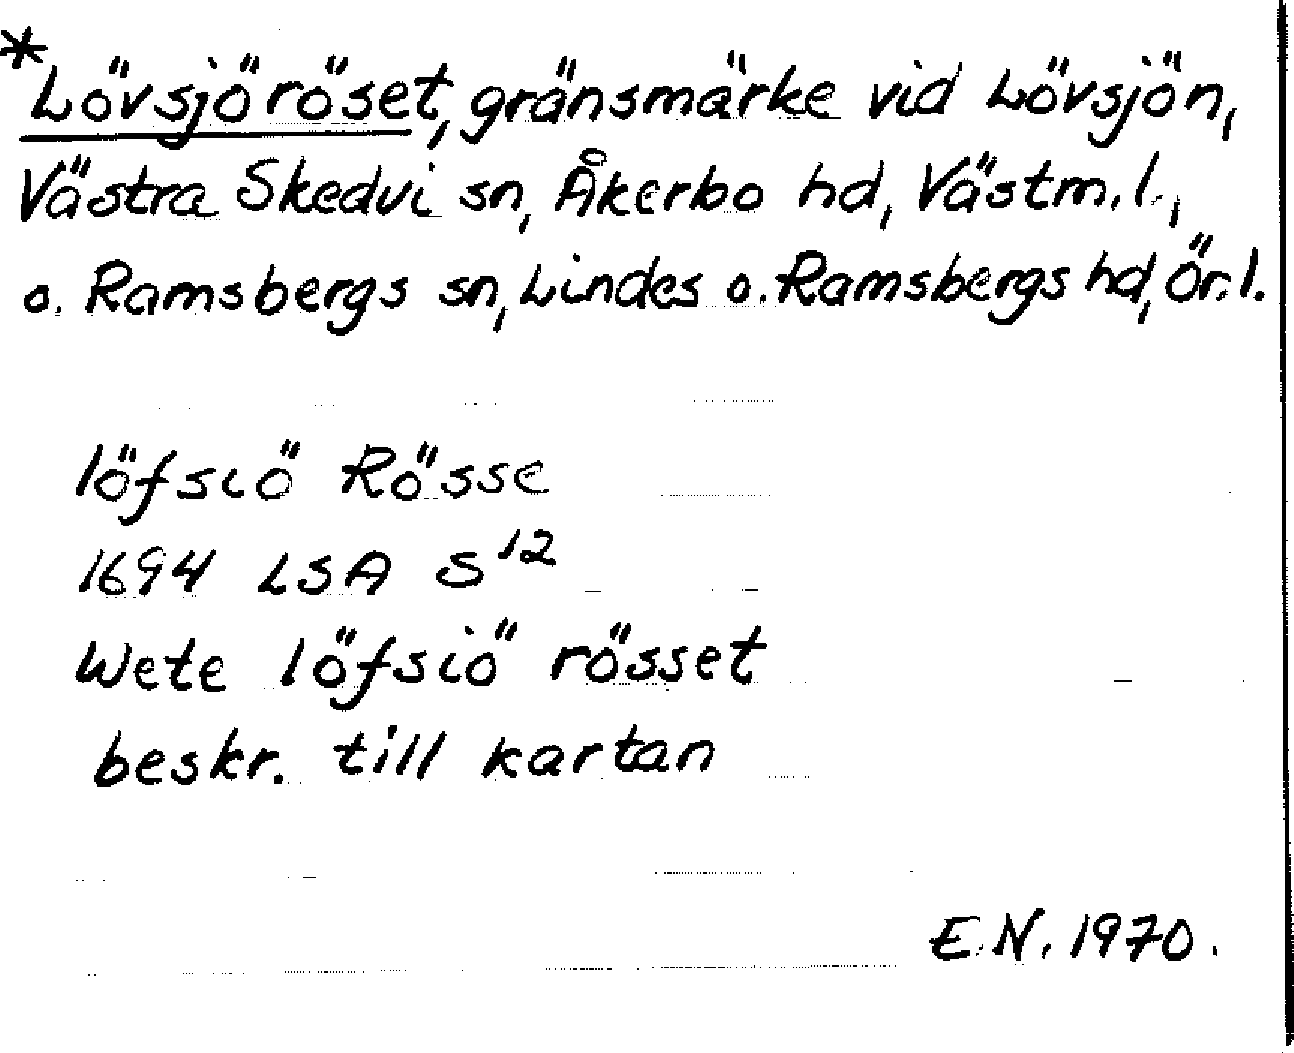 *Lövsjöröset, gränsmärke vid Lövsjön,
Västra Skedvi sn, Åkerbo hd, Västm. l.,
o. Ramsbergs sn, Lindes o. Ramsbergs hd, Ör. l.
löfsiö Rösse
1694 LSA S¹²
Wete löfsiö rösset
beskr. till kartan
E.N. 1970.